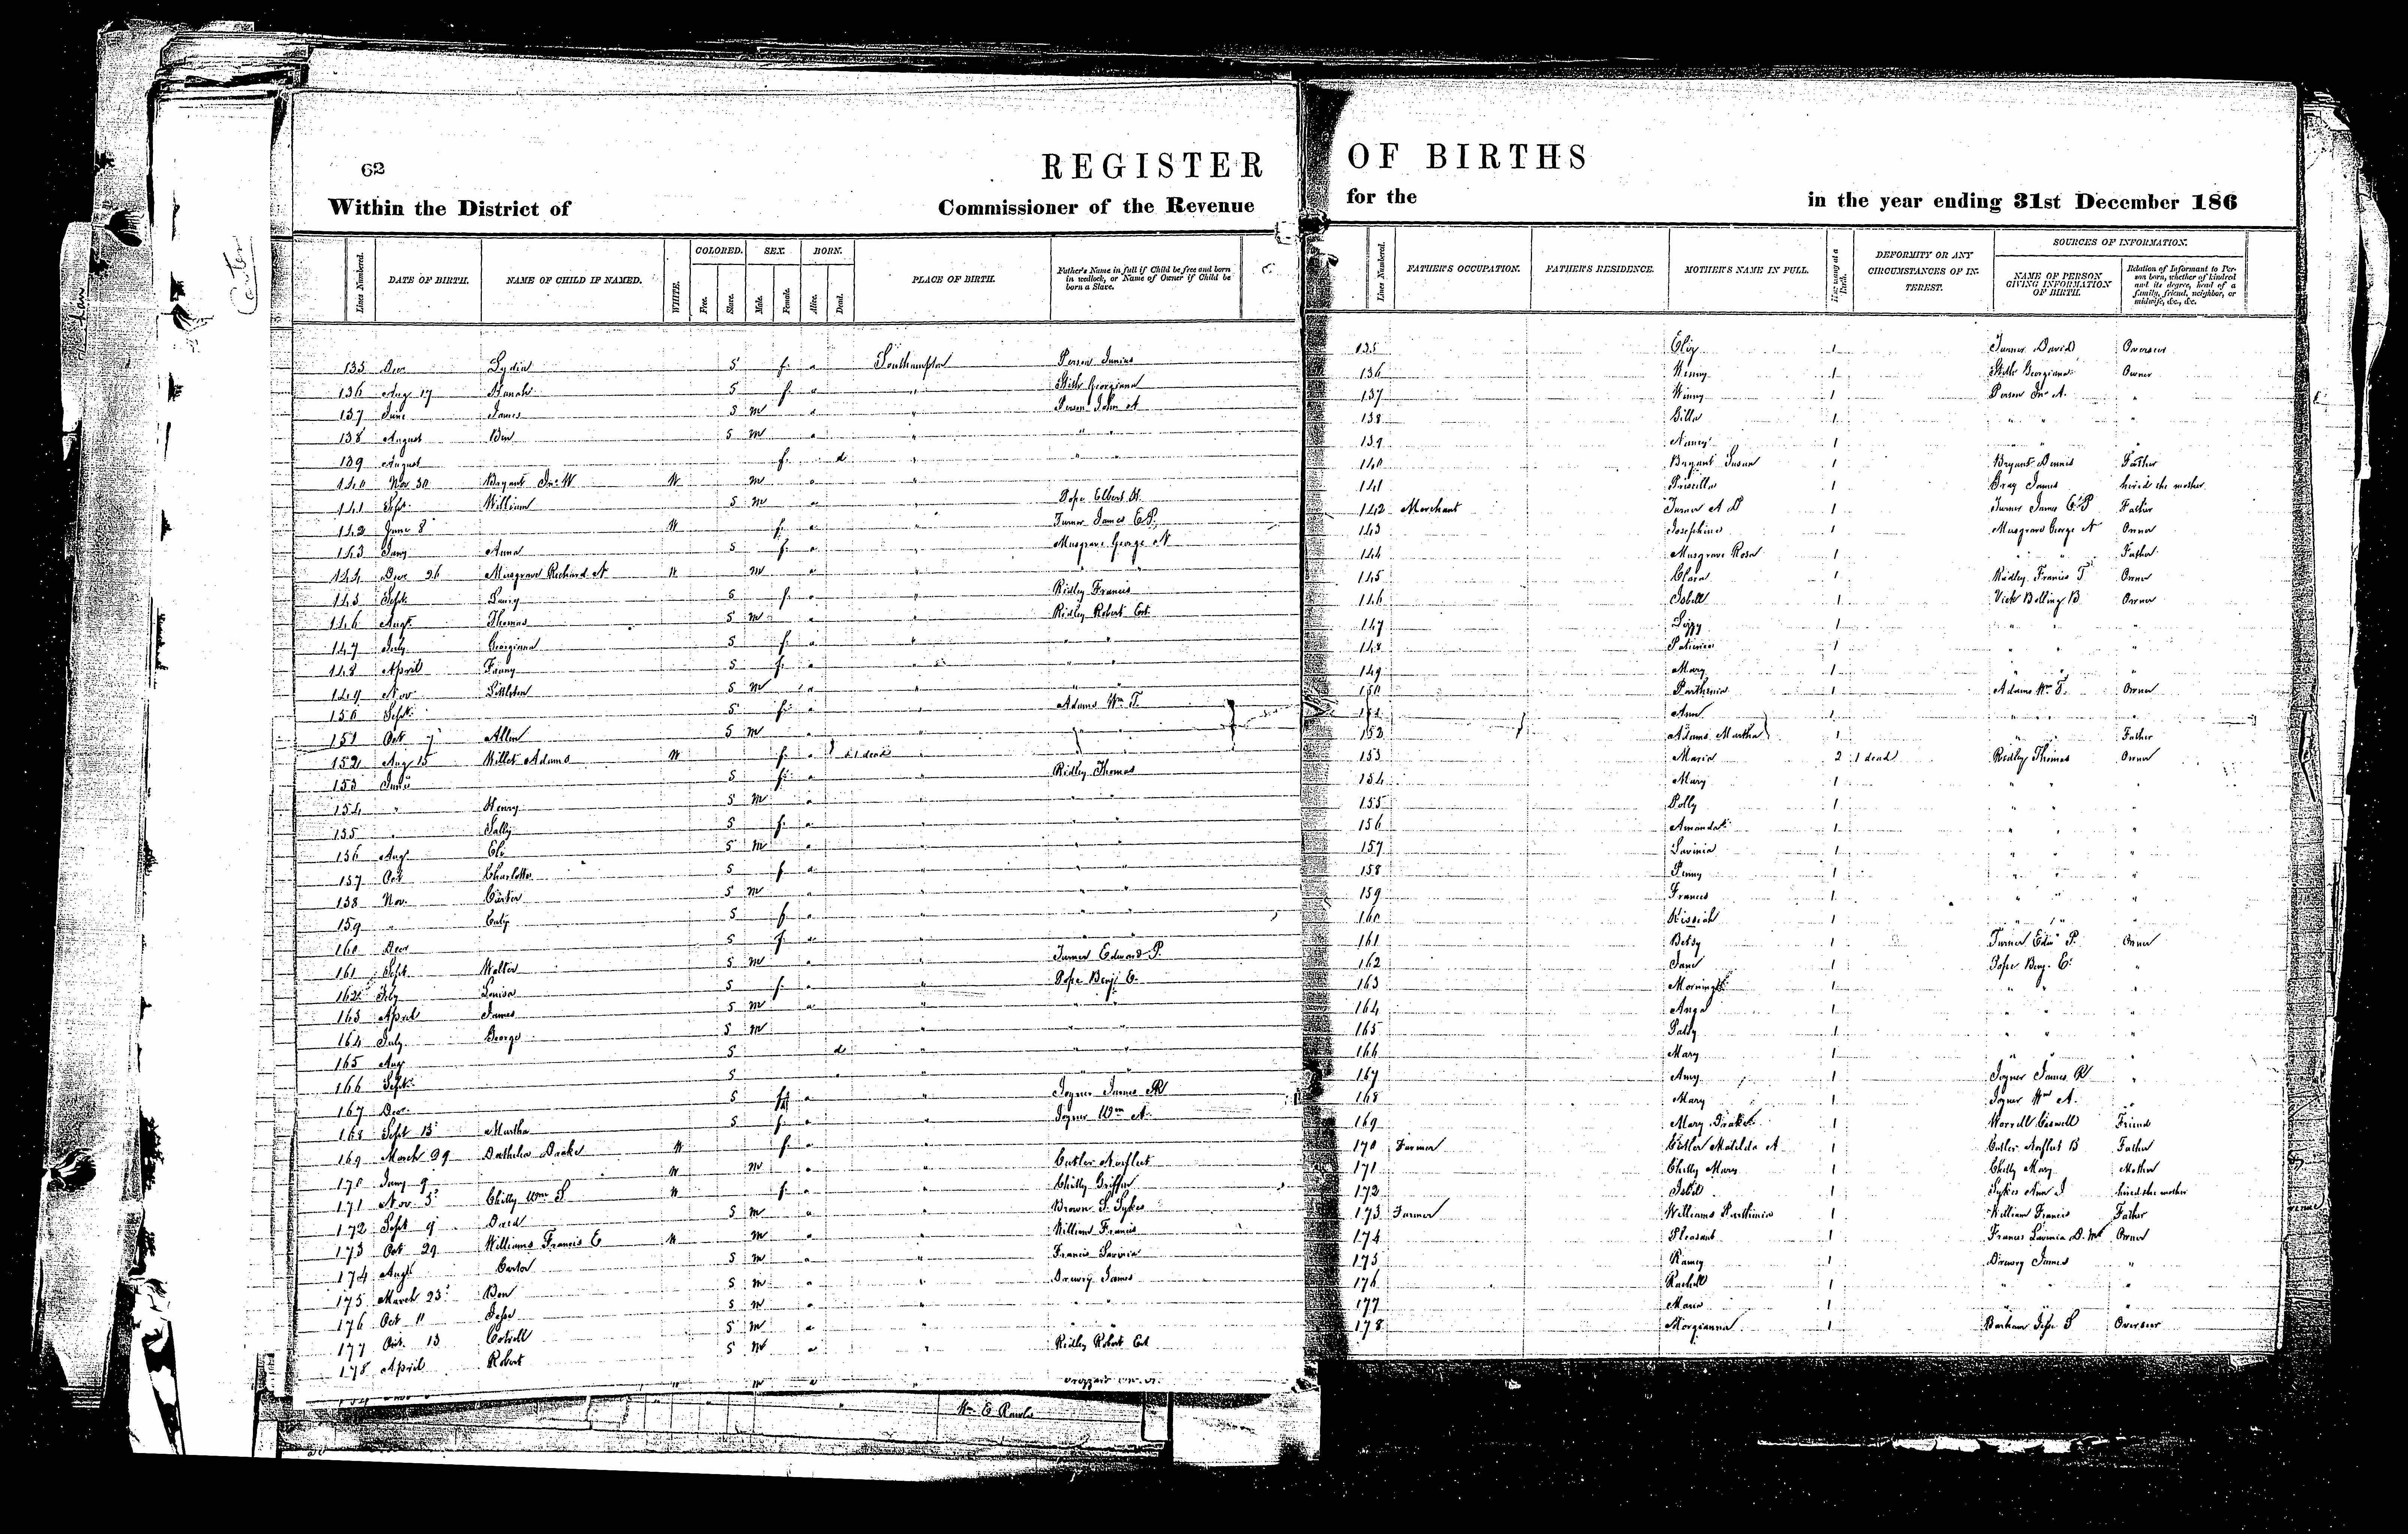 62
REGISTER OF BIRTHS
Within the District of Commissioner of the Revenue for the in the year ending 31st December 186
Carter
Lines Numbered. DATE OF BIRTH. NAME OF CHILD IF NAMED. WHITE. COLORED. Free. Slave. SEX. Male. Female. BORN. Alive. Dead. PLACE OF BIRTH. Father's Name in full if Child be free and born in wedlock, or Name of Owner if Child be born a Slave.
Lines Numbered. FATHER'S OCCUPATION. FATHER'S RESIDENCE. MOTHER'S NAME IN FULL. How many at a Birth. DEFORMITY OR ANY CIRCUMSTANCES OF INTEREST. SOURCES OF INFORMATION. NAME OF PERSON GIVING INFORMATION OF BIRTH. Relation of Informant to Person born, whether of kindred and its degree, head of a family, friend, neighbor, or midwife, &c., &c.
135 Dec Lydia S f a Southampton Person Junius
136 Aug 17 Hanah S f a " Stith Georgiana
137 June James S m a " Person John A
138 August Ben S m a " " "
139 August f d " " "
140 Nov 30 Bryant Jno W W m "
141 Sept William S m a " Pope Elbert H
142 June 8 W f a " Turner James E P
143 Jany Anna S f a " Musgrave George N
144 Dec 26 Musgrave Richard A W m a " " "
145 Sept Lucy S f a " Ridley Francis
146 Augt Thomas S m a " Ridley Robert Est
147 July Georgianna S f a " " "
148 April Fanny S f a " " "
149 Nov Littleton S m a " " "
150 Sept S f a " Adams Wm T.
151 Oct 7 Allen S m a " " "
152 Aug 15 Willet Adams W f a 1 dead "
153 June S f a " Ridley Thomas
154 " Henry S m a " " "
155 " Sally S f a " " "
156 Aug Eli S m a " " "
157 Oct Charlotte S f a " " "
158 Nov. Carter S m a " " "
159 " S f a " " "
160 Dec S f a " " "
161 Sept Walter S m a " Turner Edward P.
162 Feby Louisa S f a " Pope Benj E
163 April James S m a " " "
164 July George S m " " "
165 Aug S d " " "
166 Sept S " " "
167 Dec S f a " Joyner James R
168 Sept 15 Martha S f a " Joyner Wm A.
169 March 29 Drake W f a "
170 Jany 9 W m a " Cutler Norfleet
171 Nov 5 Chitty Wm S W f a " Chitty Griffin
172 Sept 9 S m a " Brown S. Sykes
173 Oct 29 Williams Francis E W m a " William Francis
174 Augt Carter S m a " Francis Lavinia
175 March 23 Ben S m a " Drewry James
176 Oct 11 Jesse S m a " " "
177 Oct 13 S m a " " "
178 April Robert S m a " Ridley Robert Est
Wm E Rawls
135 Eliz 1 Turner David Overseer
136 Winny 1 Stith Georgiana Owner
137 Winny 1 Person Jno A. "
138 1 " " "
139 Nancy 1 " " "
140 Bryant Susan 1 Bryant Dennis Father
141 Priscilla 1 Gray James hired the mother
142 Merchant Turner A D 1 Turner James E P Father
143 Josephine 1 Musgrave George N Owner
144 Musgrave Rosa 1 " " Father
145 Clara 1 Ridley Francis T Owner
146 Isbell 1 Vick Bolling B Owner
147 Lizzy 1 " " "
148 Patience 1 " " "
149 Mary 1 " " "
150 Parthenia 1 Adams Wm T. Owner
151 Ann 1 " " "
152 Adams Martha 1 " " Father
153 Maria 2 1 dead Ridley Thomas Owner
154 Mary 1 " " "
155 Polly 1 " " "
156 Amanda 1 " " "
157 Lavinia 1 " " "
158 Penny 1 " " "
159 Frances 1 " " "
160 Kissiah 1 " " "
161 Betsy 1 Turner Edwd P. Owner
162 Jane 1 Pope Benj. E. "
163 Morning 1 " " "
164 1 " " "
165 Patsy 1 " " "
166 Mary 1 " " "
167 Amy 1 Joyner James R "
168 Mary 1 Joyner Wm A. "
169 Mary Drake 1 Worrell Caswell Friend
170 Farmer Cutler Matilda A 1 Cutler Norfleet B Father
171 Chitty Mary 1 Chitty Mary Mother
172 1 Sykes Ann J hired the mother
173 Farmer Williams Parthenia 1 William Francis Father
174 Pleasant 1 Frances Lavinia D. Owner
175 1 Drewry James "
176 Rachell 1 " " "
177 Maria 1 " " "
178 Morgianna 1 Barham Jesse S Overseer